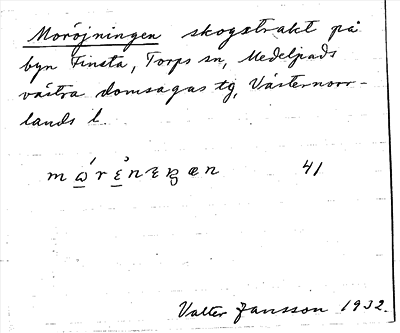 Moröjningen skogstrakt på
byn Finsta, Torps sn, Medelpads
västra domsagas tg, Västernorr-
lands l.
41
Valter Jansson 1932.